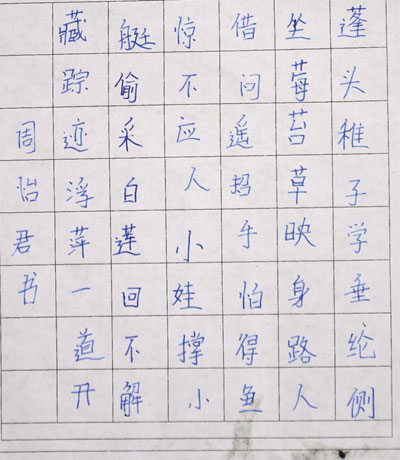 蓬头稚子学垂纶侧
坐莓苔草映身路人
借问遥招手怕得鱼
惊不应人小娃撑小
艇偷采白莲回不解
藏踪迹浮萍一道开
周怡君书